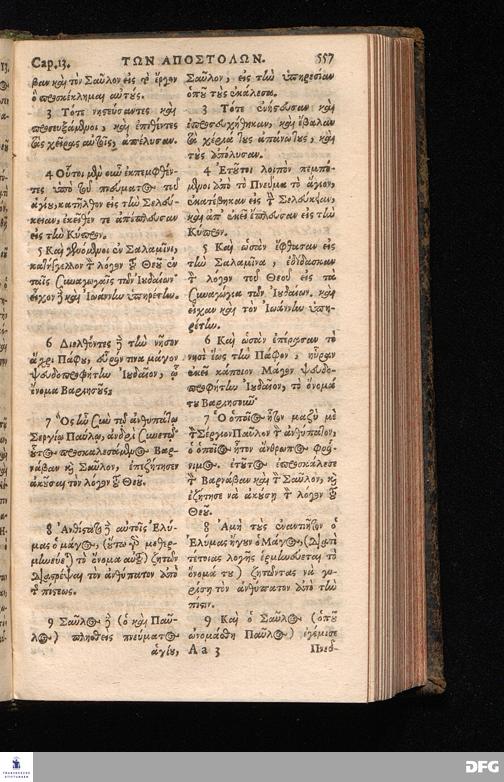 Cap. 13. ΤΩΝ ΑΠΟΣΤΟΛΩΝ. 557
βαν καὶ τὸν Σαῦλον εἰς τὸ ἔργον
ὃ προσκέκλημαι αὐτούς.
3 Τότε νηστεύσαντες καὶ
προσευξάμενοι, καὶ ἐπιθέντες
τὰς χεῖρας αὐτοῖς, ἀπέλυσαν.
4 Οὗτοι μὲν οὖν ἐκπεμφθέν-
τες ὑπὸ τοῦ πνεύματος τοῦ
ἁγίου, κατῆλθον εἰς τὴν Σελεύ-
κειαν, ἐκεῖθέν τε ἀπέπλευσαν
εἰς τὴν Κύπρον.
5 Καὶ γενόμενοι ἐν Σαλαμῖνι,
κατήγγελλον τὸν λόγον τοῦ Θεοῦ ἐν
ταῖς συναγωγαῖς τῶν Ἰουδαίων·
εἶχον δὲ καὶ Ἰωάννην ὑπηρέτην.
6 Διελθόντες δὲ τὴν νῆσον
ἄχρι Πάφου, εὗρόν τινα μάγον
ψευδοπροφήτην Ἰουδαῖον, ᾧ
ὄνομα Βαρϊησοῦς;
7 Ὃς ἦν σὺν τῷ ἀνθυπάτῳ
Σεργίῳ Παύλῳ, ἀνδρὶ συνετῷ·
οὗτος προσκαλεσάμενος Βαρ-
νάβαν καὶ Σαῦλον, ἐπεζήτησεν
ἀκοῦσαι τὸν λόγον τοῦ Θεοῦ.
8 Ἀνθίστατο δὲ αὐτοῖς Ἐλύ-
μας ὁ μάγος, (οὕτω γὰρ μεθερ-
μηνεύεται τὸ ὄνομα αὐτοῦ) ζητῶν
διαστρέψαι τὸν ἀνθύπατον ἀπὸ
τῆς πίστεως.
9 Σαῦλος δὲ (ὁ καὶ Παῦ-
λος) πλησθεὶς πνεύματος
ἁγίου,
Σαῦλον, εἰς τὴν ὑπηρεσίαν
ὁποῦ τοὺς ἐκάλεσα.
3 Τότε ἐνήστευσαν καὶ
ἐπροσευχήθηκαν, καὶ ἔβαλαν
τὰ χέρια τους ἀπάνω τους, καὶ
τοὺς ἀπόλυσαν.
4 Ἐτοῦτοι λοιπὸν πεμπό-
μενοι ἀπὸ τὸ Πνεῦμα τὸ ἅγιον,
ἐκατέβηκαν εἰς τὴν Σελεύκειαν,
καὶ ἀπ' ἐκεῖ ἔπλευσαν εἰς τὴν
Κύπρον.
5 Καὶ ὡσὰν ἔφθασαν εἰς
τὴν Σαλαμῖνα, ἐδίδασκαν
τὸν λόγον τοῦ Θεοῦ εἰς τὰ
συναγώγια τῶν Ἰουδαίων. καὶ
εἶχαν καὶ τὸν Ἰωάννην ὑπη-
ρέτην.
6 Καὶ ὡσὰν ἐπέρασαν τὸ
νησὶ ἕως τὴν Πάφον, ηὗραν
ἐκεῖ κάποιον Μάγον ψευδο-
προφήτην Ἰουδαῖον, τὸ ὄνομά
του Βαρϊησοῦν·
7 Ὁ ὁποῖος ἦτον μαζὺ μὲ
τὸν Σέργιον Παῦλον τὸν ἀνθύπατον,
ὁ ὁποῖος ἦτον ἄνθρωπος φρό-
νιμος. ἐτοῦτος ἐπροσκάλεσε
τὸν Βαρνάβαν καὶ τὸν Σαῦλον, καὶ
ἐζήτησε νὰ ἀκούσῃ τὸν λόγον τοῦ
Θεοῦ.
8 Ἀμὴ τοὺς ἐναντιῆτον ὁ
Ἐλύμας ἤγουν ὁ Μάγος, (διατὶ
τέτοιας λογῆς ἑρμηνεύεται τὸ
ὄνομά του) ζητῶντας νὰ χω-
ρίσῃ τὸν ἀνθύπατον ἀπὸ τὴν
πίστιν.
9 Καὶ ὁ Σαῦλος (ὁποῦ
ὠνομάσθη Παῦλος) ἐγέμισε
Aa 3 Πνεῦ-
FRANCKESCHE STIFTUNGEN
DFG